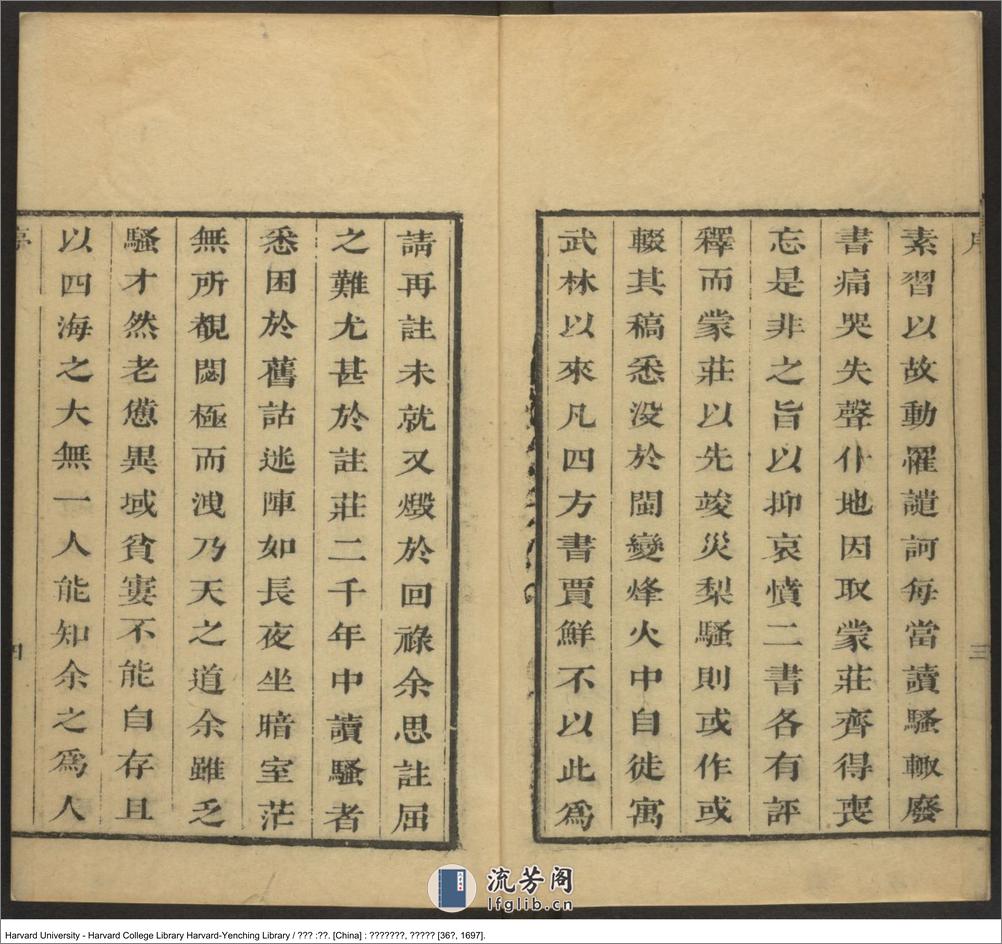 序
三
素習以故動罹譴訶每當讀騷輙廢
書痛哭失聲仆地因取蒙莊齊得喪
忘是非之旨以抑哀憤二書各有評
釋而蒙莊以先竣災梨騷則或作或
輟其稿悉没於閩變烽火中自徙寓
武林以來凡四方書賈鮮不以此爲
請再註未就又燬於回祿余思註屈
之難尤甚於註莊二千年中讀騷者
悉困於舊詁迷陣如長夜坐暗室茫
無所覩閟極而洩乃天之道余雖乏
騷才然老憊異域貧窶不能自存且
以四海之大無一人能知余之爲人
四
流芳阁
lfglib.cn
Harvard University - Harvard College Library Harvard-Yenching Library / ??? :??. [China] : ???????, ????? [36?, 1697].